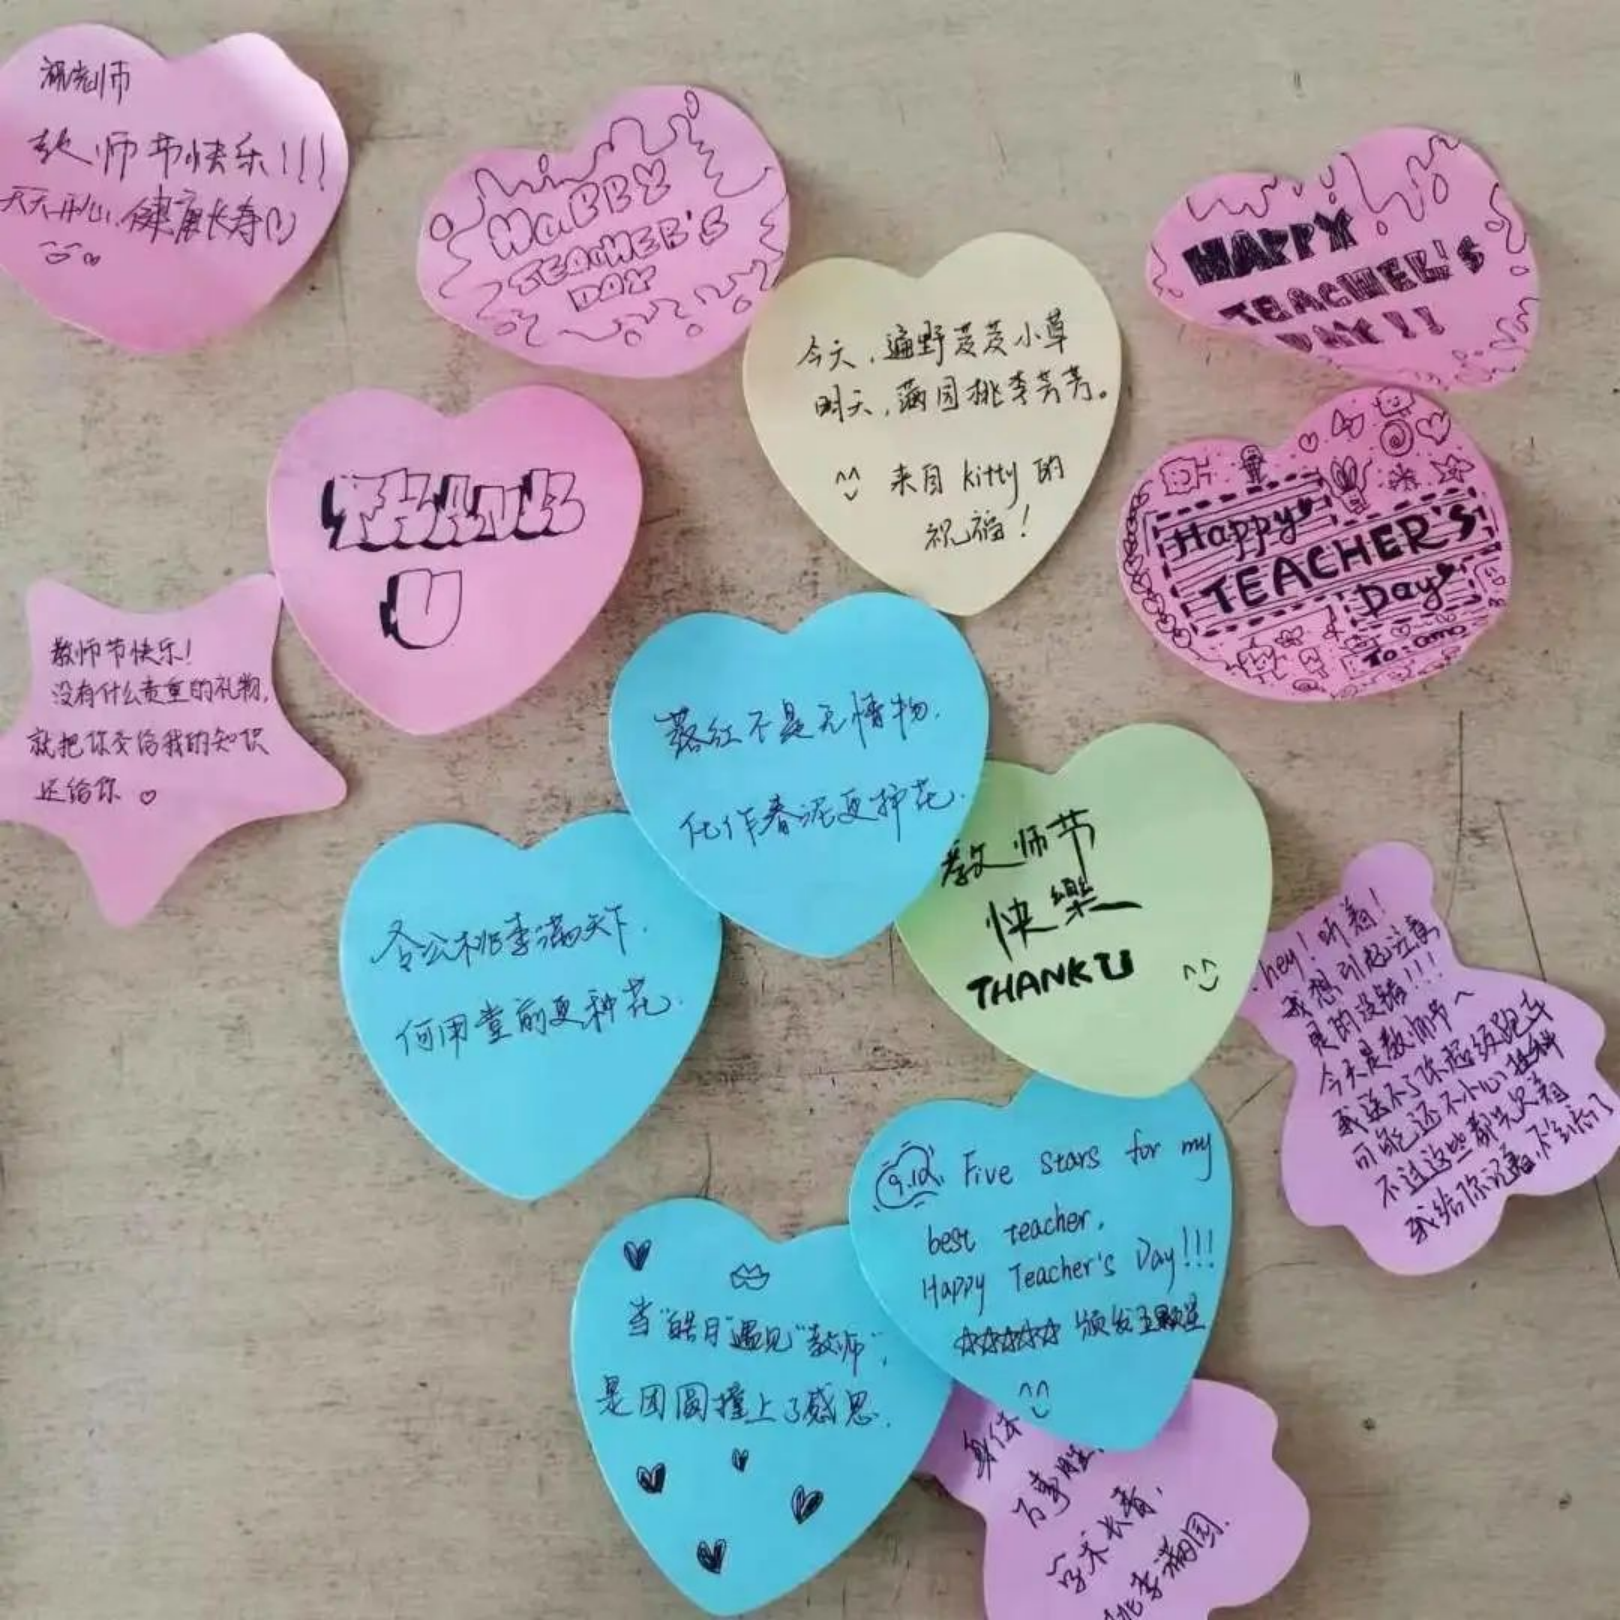 祝老师
教师节快乐!!!
天天开心,健康长寿
HAPPY
TEACHER'S
DAY
HAPPY
TEACHER'S
DAY!!
今天,遍野茭茭小草
明天,满园桃李芳芳。
来自 kitty 的
祝福!
THANK
U
Happy
TEACHER'S
Day
To:
教师节快乐!
没有什么贵重的礼物,
就把你交给我的知识
还给你
落红不是无情物.
化作春泥更护花.
教师节
快樂
THANK U
令公桃李满天下.
何用堂前更种花.
hey!听着!
我想引起注意
是的没错!!!
今天是教师节
我送不了你超级跑车
可能还不小心挂科
不过这些都先欠着
我给你记着,
9.10. Five stars for my
best teacher.
Happy Teacher's Day!!!
颁发五颗星
当"皓月"遇见"教师",
是团圆撞上了感恩.
身体
万事胜
长青,
桃李满园.